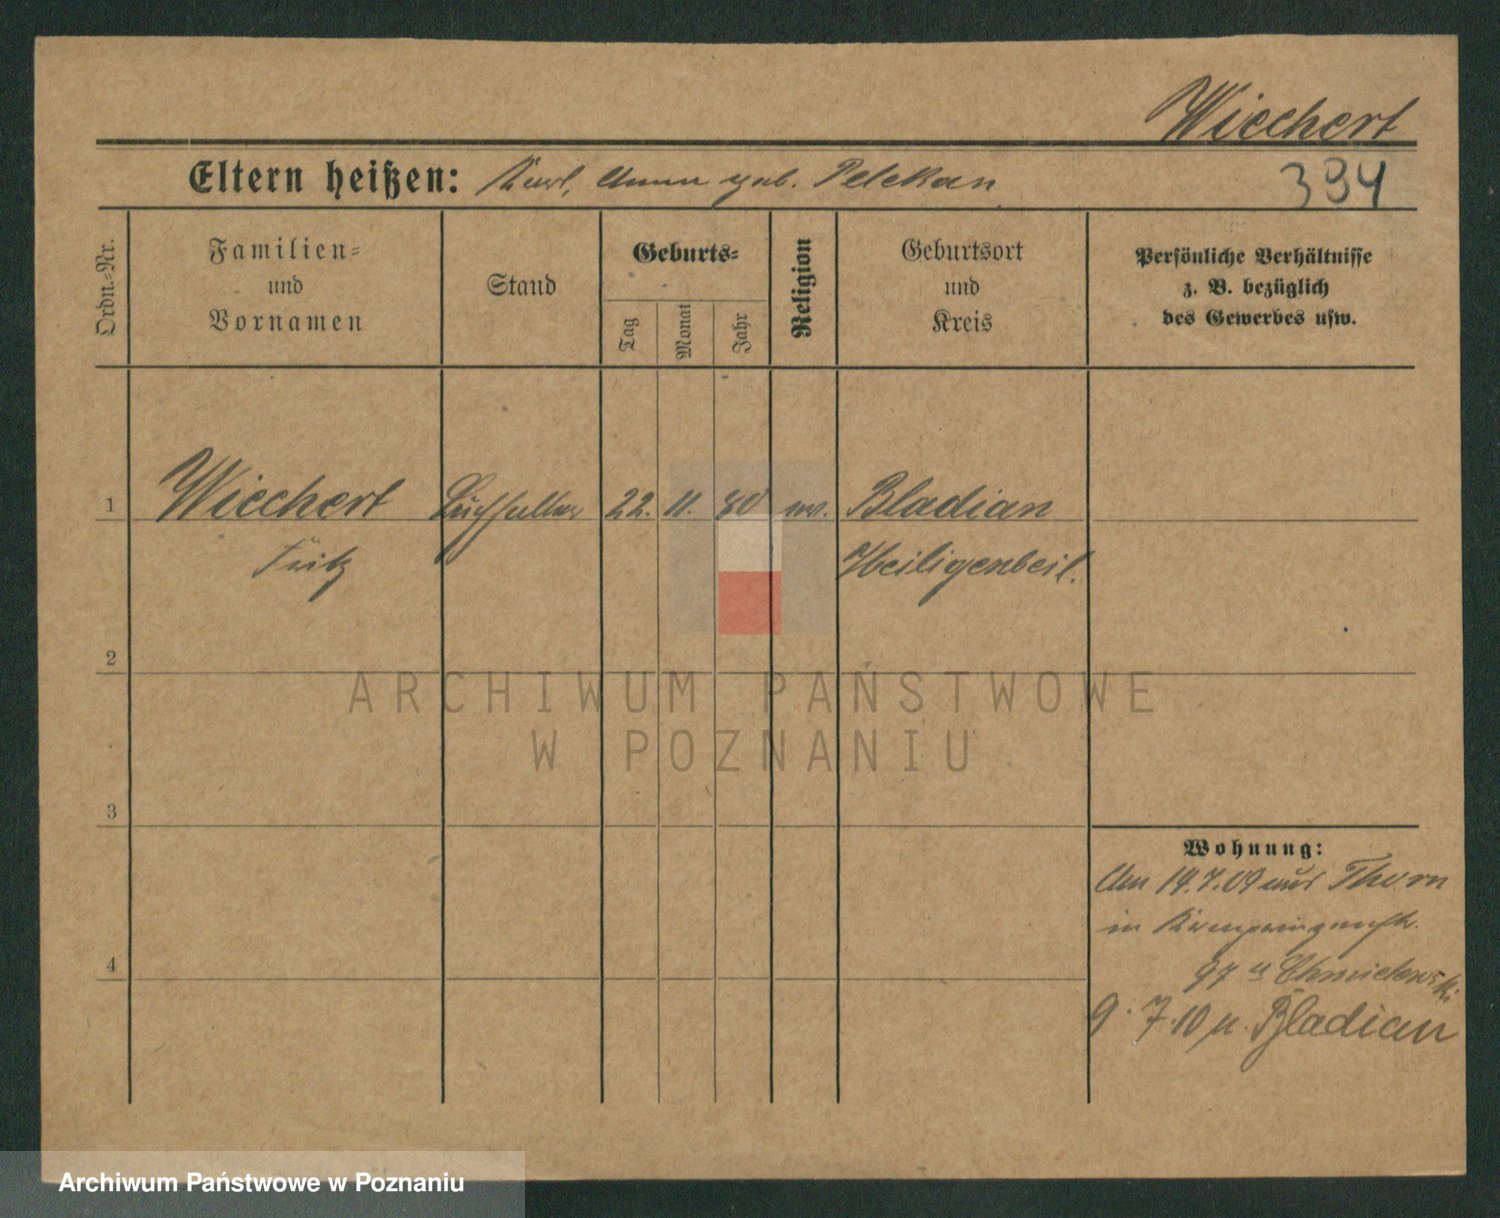 Wiechert
Eltern heißen: Karl, Anna geb. Pelekan
394
Ordn.-Nr.
Familien-
und
Vornamen
Stand
Geburts-
Tag
Monat
Jahr
Religion
Geburtsort
und
Kreis
Persönliche Verhältnisse
z. B. bezüglich
des Gewerbes usw.
1 Wiechert Buchhalter 22. 11. 80 ev. Bladian
Fritz Heiligenbeil.
2
3
4
Wohnung:
Am 19.7.09 aus Thorn
in Kronprinzenstr.
97 Chmielewski
9. 7. 10 n. Bladian
ARCHIWUM PAŃSTWOWE
W POZNANIU
Archiwum Państwowe w Poznaniu